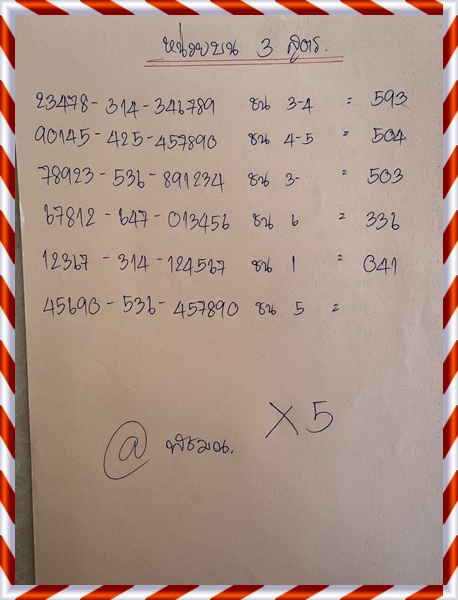 หน่วยบน 3 สูตร.
23478 - 314 - 346789 ชน 3-4 = 593
90145 - 425 - 457890 ชน 4-5 = 504
78923 - 536 - 891234 ชน 3- = 503
67812 - 647 - 013456 ชน 6 = 336
12367 - 314 - 124567 ชน 1 = 041
45690 - 536 - 457890 ชน 5 =
X5
@